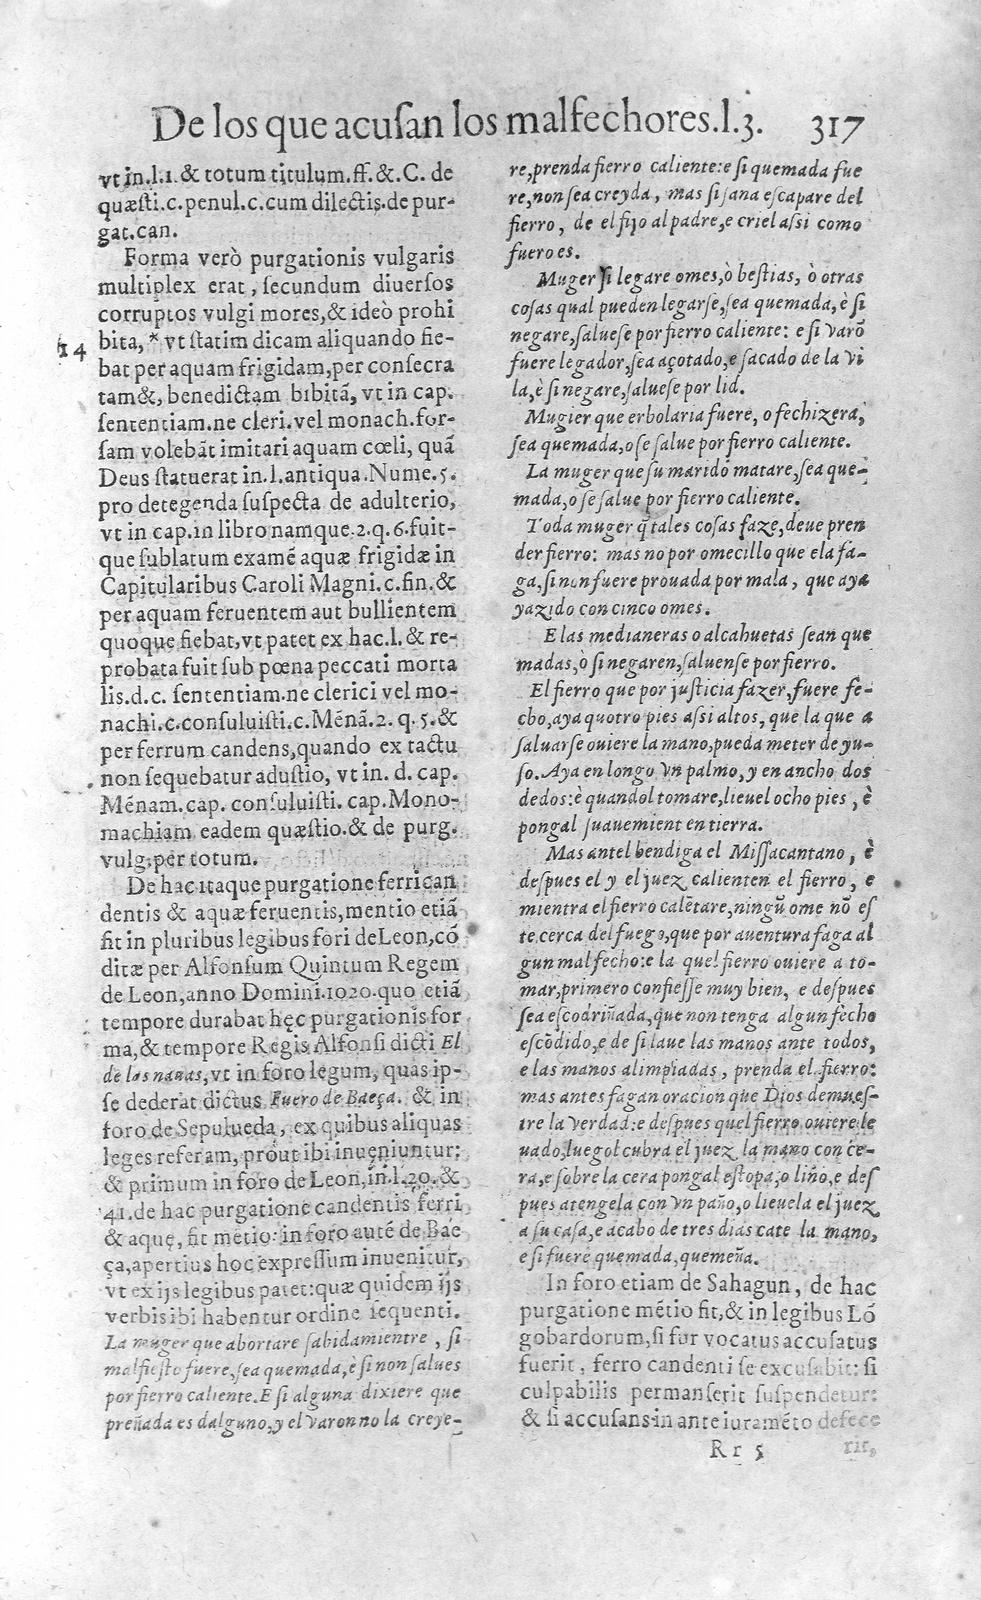 De los que acuſan los malfechores.l.3. 317
vt in.l.1.& totum titulum.ff.&.C. de
quæſti.c.penul.c.cum dilectis.de pur-
gat.can.
Forma verò purgationis vulgaris
multiplex erat, ſecundum diuerſos
corruptos vulgi mores,& ideò prohi
14
bita,* vt ſtatim dicam aliquando fie-
bat per aquam frigidam,per conſecra
tam&, benedictam bibitã, vt in cap.
ſententiam.ne cleri.vel monach.for-
ſam volebãt imitari aquam cœli, quã
Deus ſtatuerat in.l.antiqua.Nume.5.
pro detegenda ſuſpecta de adulterio,
vt in cap.in libro namque.2.q.6.fuit-
que ſublatum examẽ aquæ frigidæ in
Capitularibus Caroli Magni.c.fin.&
per aquam feruentem aut bullientem
quoque fiebat,vt patet ex hac.l.& re-
probata fuit ſub pœna peccati morta
lis.d.c. ſententiam.ne clerici vel mo-
nachi.c.conſuluiſti.c.Mẽnã.2.q.5.&
per ferrum candens,quando ex tactu
non ſequebatur aduſtio, vt in. d. cap.
Mẽnam.cap. conſuluiſti. cap.Mono-
machiam eadem quæſtio.& de purg.
vulg.per totum.
De hac itaque purgatione ferri can
dentis & aquæ feruentis,mentio etiã
fit in pluribus legibus fori de Leon,cõ
ditæ per Alfonſum Quintum Regem
de Leon,anno Domini.1020.quo etiã
tempore durabat hęc purgationis for
ma,& tempore Regis Alfonſi dicti El
de las nauas,vt in foro legum, quas ip-
ſe dederat dictus Fuero de Baeça. & in
foro de Sepulueda, ex quibus aliquas
leges referam, prout ibi inueniuntur:
& primum in foro de Leon,in.l.20.&
41.de hac purgatione candentis ferri
& aquę, fit mẽtio: in foro autẽ de Bae
ça,apertius hoc expreſſum inuenitur,
vt ex ijs legibus patet:quæ quidem ijs
verbis ibi habentur ordine ſequenti.
La muger que abortare ſabidamientre, ſi
malfieſto fuere,ſea quemada,è ſi non ſalues
por fierro caliente.E ſi alguna dixiere que
preñada es dalguno,y el varon no la creye-
re,prenda fierro caliente:e ſi quemada fue
re,non ſea creyda, mas ſi ſana eſcapare del
fierro, de el fijo al padre,e criel aſsi como
fuero es.
Muger ſi legare omes,ò beſtias, ò otras
coſas qual pueden legarſe,ſea quemada,è ſi
negare,ſalueſe por fierro caliente: e ſi varõ
fuere legador,ſea açotado,e ſacado de la vi
la,è ſi negare,ſalueſe por lid.
Mugier que erbolaria fuere, o fechizera,
ſea quemada,o ſe ſalue por fierro caliente.
La muger que ſu marido matare,ſea que-
mada,o ſe ſalue por fierro caliente.
Toda muger q̃ tales coſas faze,deue pren
der fierro: mas no por omecillo que ela fa-
ga,ſi non fuere prouada por mala, que aya
yazido con cinco omes.
E las medianeras o alcahuetas ſean que
madas,ò ſi negaren,ſaluenſe por fierro.
El fierro que por juſticia fazer,fuere fe-
cho,aya quotro pies aſsi altos, que la que a
ſaluarſe ouiere la mano,pueda meter de yu-
ſo.Aya en longo vn palmo,y en ancho dos
dedos:è quandol tomare,lieuel ocho pies, è
pongal ſuauemient en tierra.
Mas antel bendiga el Miſſacantano, è
deſpues el y el juez calienten el fierro, e
mientra el fierro calẽtare,ningũ ome nõ eſ
te cerca del fuego,que por auentura faga al
gun mal fecho:e la quel fierro ouiere a to-
mar,primero confieſſe muy bien, e deſpues
ſea eſcodriñada,que non tenga algun fecho
eſcõdido,e de ſi laue las manos ante todos,
e las manos alimpiadas, prenda el fierro:
mas antes fagan oracion que Dios demueſ-
tre la verdad:e deſpues quel fierro ouiere le
uado,luegol cubra el juez la mano con ce-
ra,e ſobre la cera pongal eſtopa,o liño,e deſ
pues atengela con vn paño,o lieuela el juez
a ſu caſa,e acabo de tres dias cate la mano,
e ſi fuere quemada,quemeña.
In foro etiam de Sahagun, de hac
purgatione mẽtio fit,& in legibus Lõ
gobardorum,ſi fur vocatus accuſatus
fuerit, ferro candenti ſe excuſabit: ſi
culpabilis permanſerit ſuſpendetur:
& ſi accuſans in ante iuramẽto defece
Rr 5 rit,